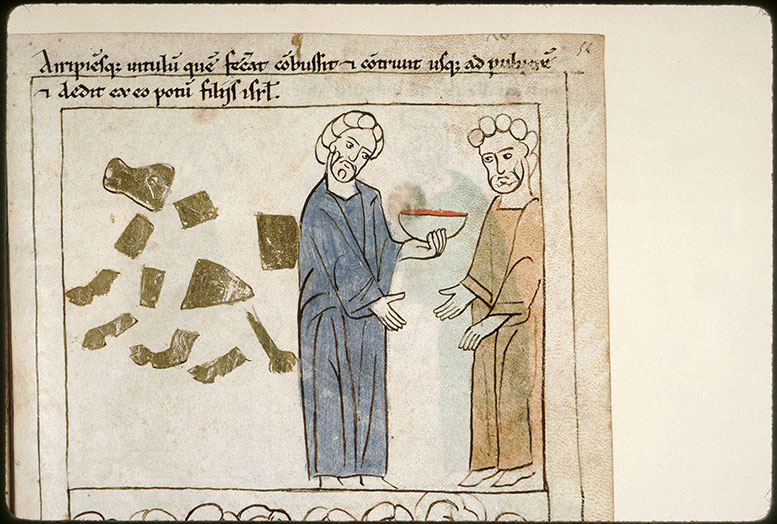 Arripiēsq; uitulū quē fec̄at cōbussit ⁊ cōtriuit usq; ad puluerē
⁊ dedit ex eo potū filijs isrl̄.